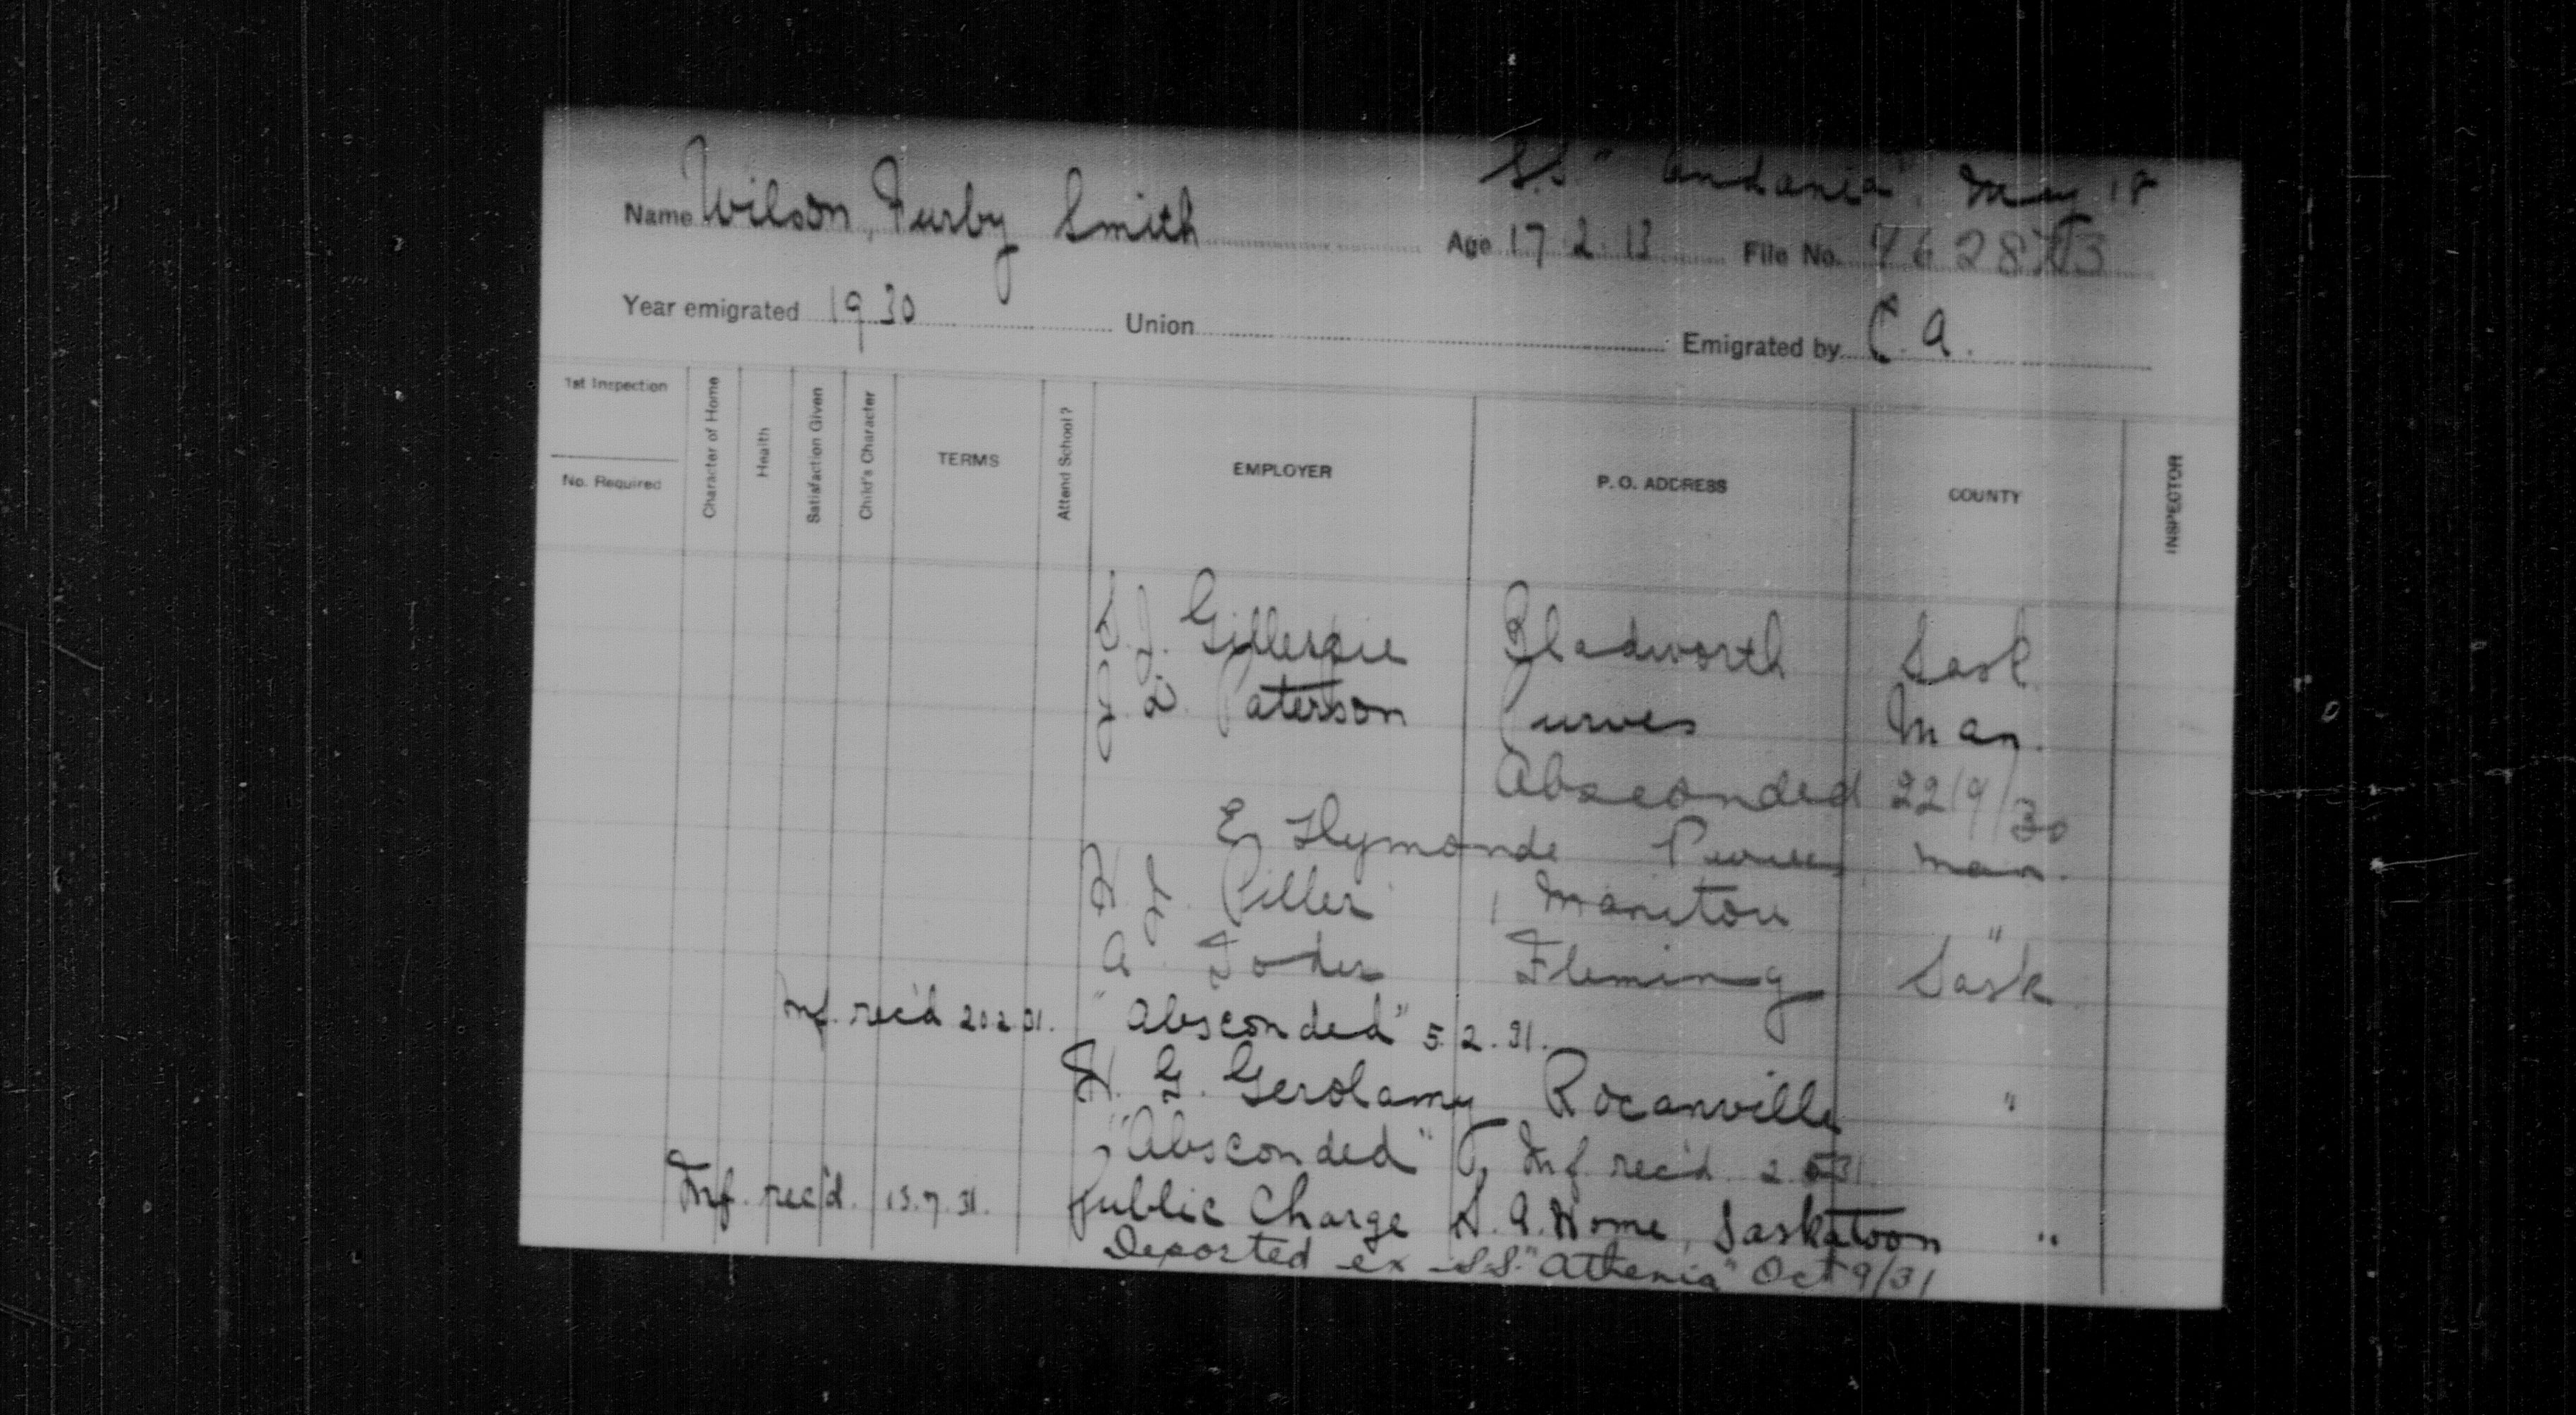 S.S "Andania", May 18
Name Wilson, Furby Smith Age 17 2. 13 File No.
Year emigrated 1930 Union Emigrated by C.A.
1st Inspection
No. Required
Character of Home
Health
Satisfaction Given
Child's Character
TERMS
Attend School?
EMPLOYER
P.O. ADDRESS
COUNTY
INSPECTOR
J. Gillespie Bladworth Sask
Paterson Purves Man.
Absconded 22/9/30
E Purves Man.
H Piller Manitou "
A Fleming Sask
Inf. rec'd 20.2.31. "Absconded" 5.2.31.
H. G. Gerolamy Rocanville "
"Absconded" Inf rec'd. 2.5.31.
Inf. rec'd. 15.7.31. Public Charge S.A. Home, Saskatoon "
Deported ex S.S. "Athenia" Oct 9/31